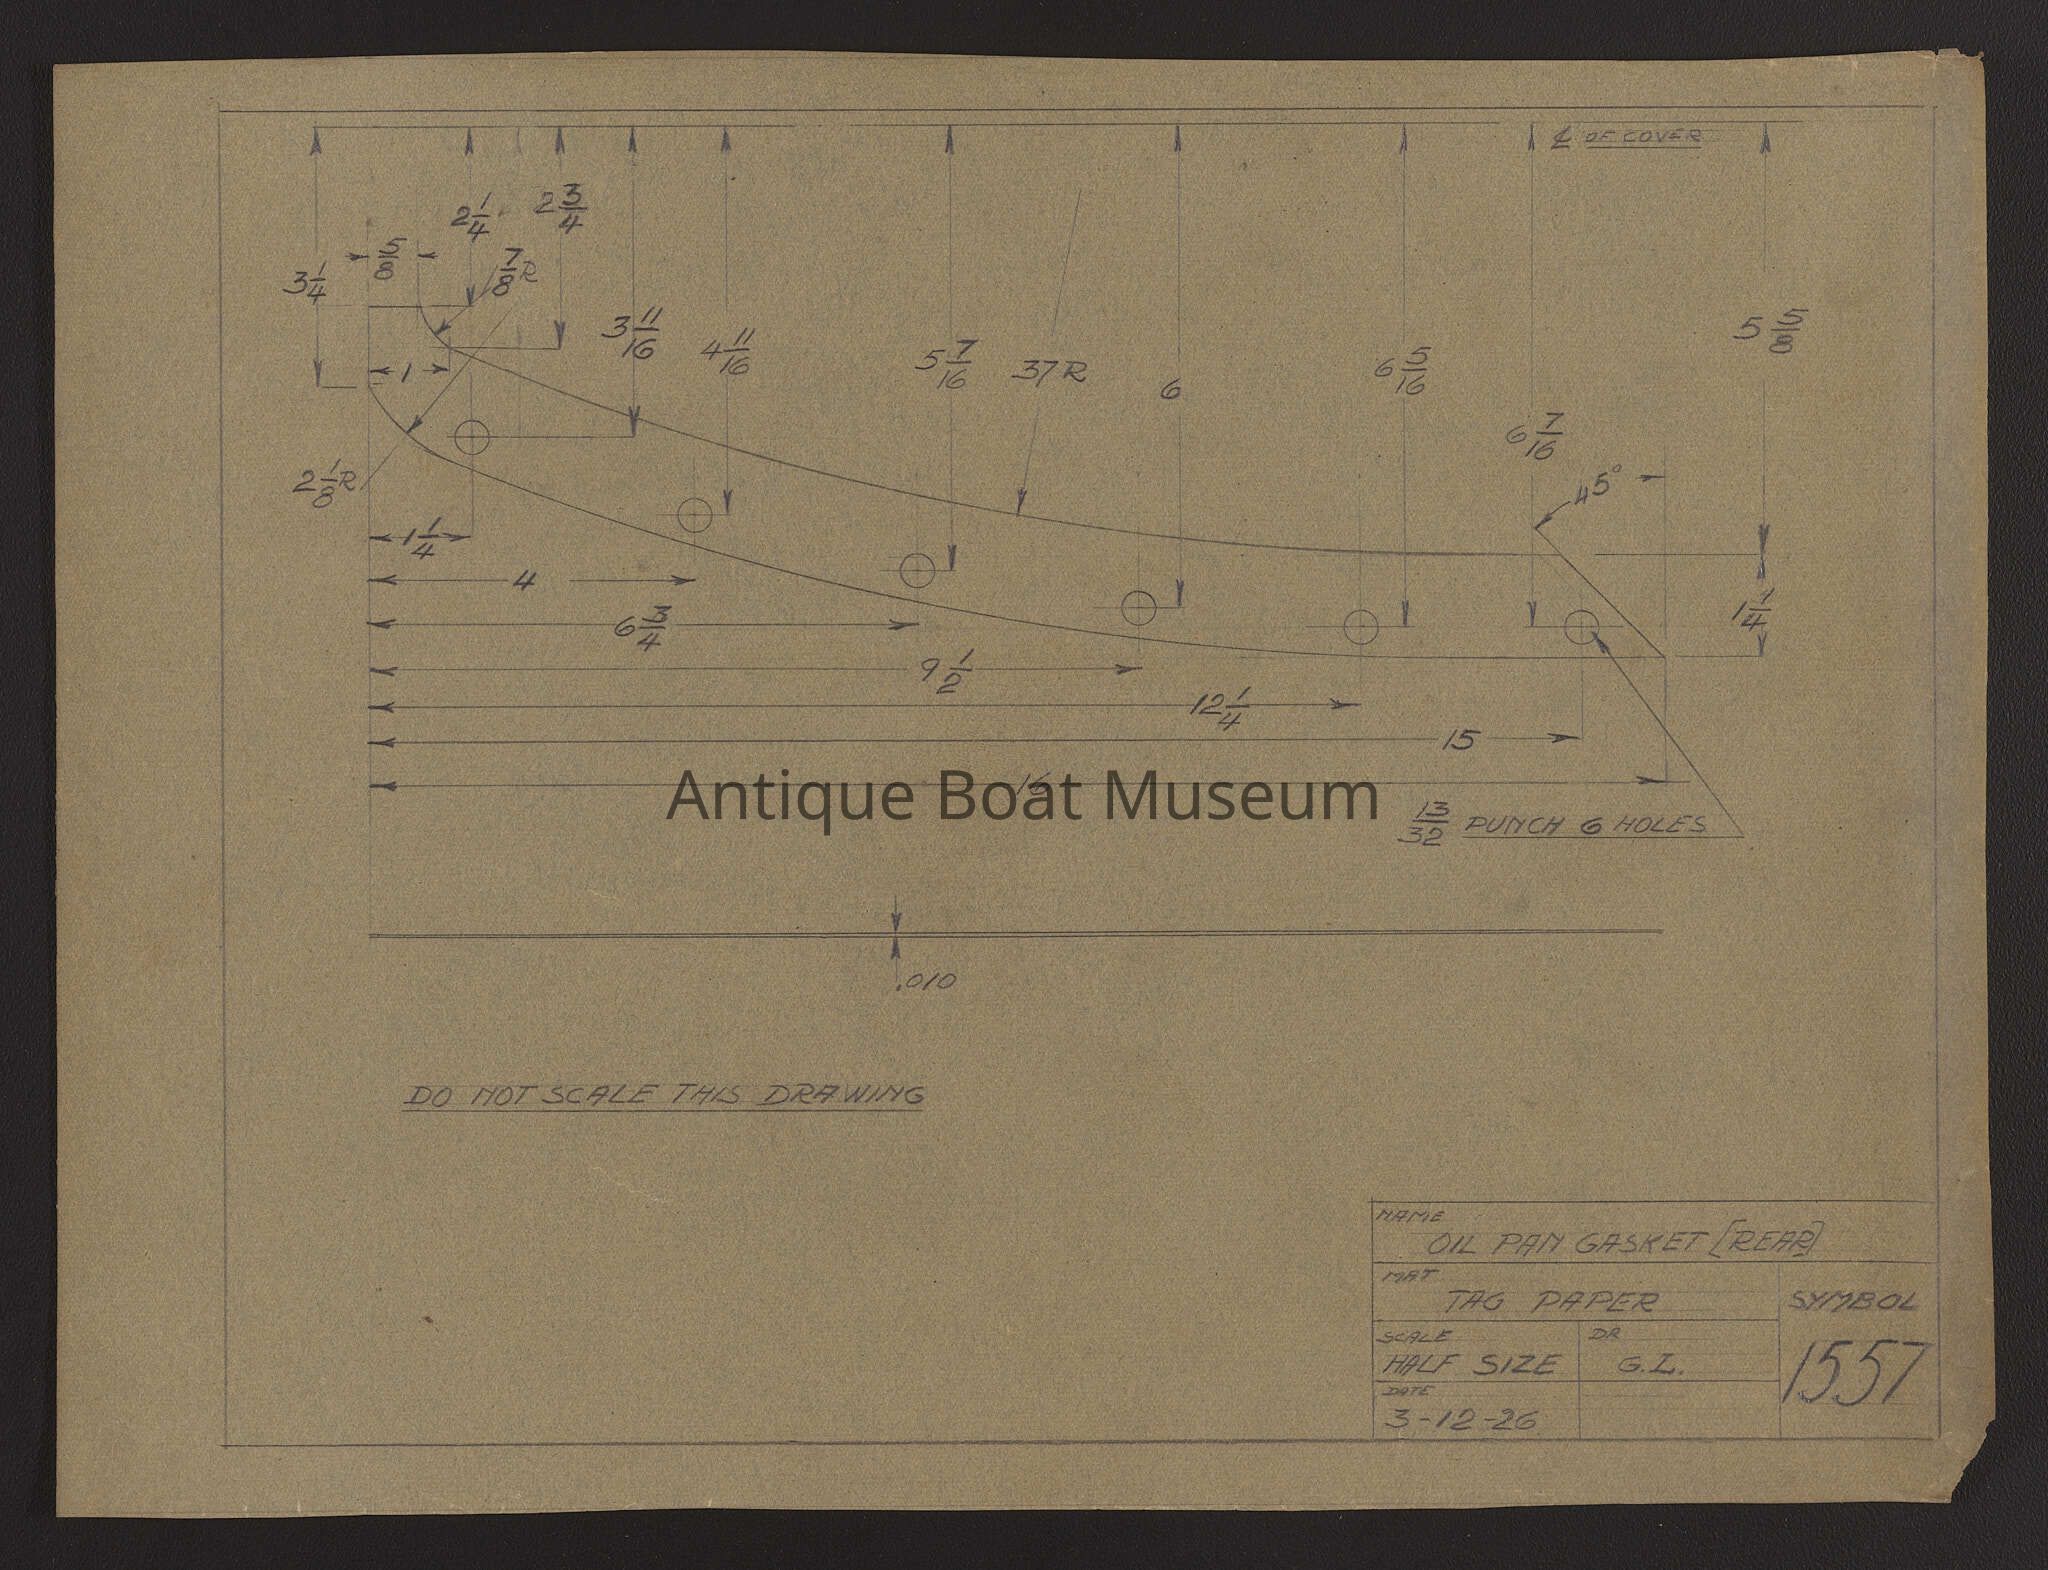 ℄ OF COVER
2 1/4
2 3/4
5/8
7/8 R
3 1/4
3 11/16
4 11/16
5 7/16
37 R
6
6 5/16
5 5/8
1
6 7/16
45°
2 1/8 R
1 1/4
4
6 3/4
1 1/4
9 1/2
12 1/4
15
16
Antique Boat Museum
13/32 PUNCH 6 HOLES
.010
DO NOT SCALE THIS DRAWING
NAME
OIL PAN GASKET [REAR]
MAT
TAG PAPER
SYMBOL
SCALE
HALF SIZE
DR
G.L.
1557
DATE
3-12-26